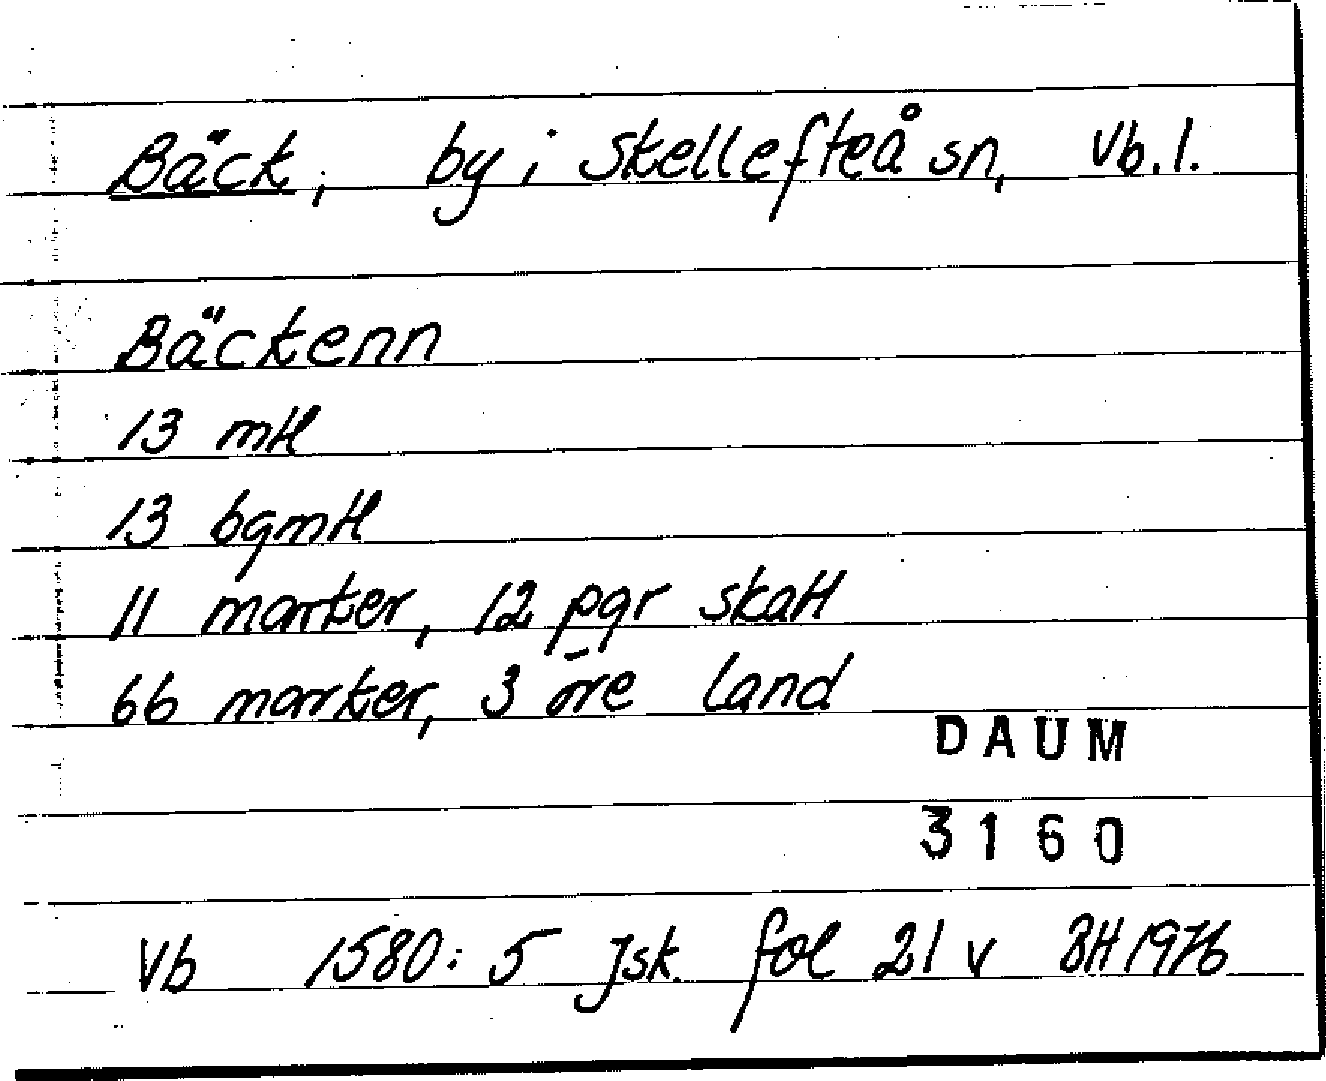 Bäck, by i Skellefteå sn, Vb.l.
Bäckenn
13 mtl
13 bgmtl
11 marker, 12 pgr skatt
66 marker, 3 öre land
DAUM
3160
Vb 1580:5 Jsk. fol 21 v BH 1976